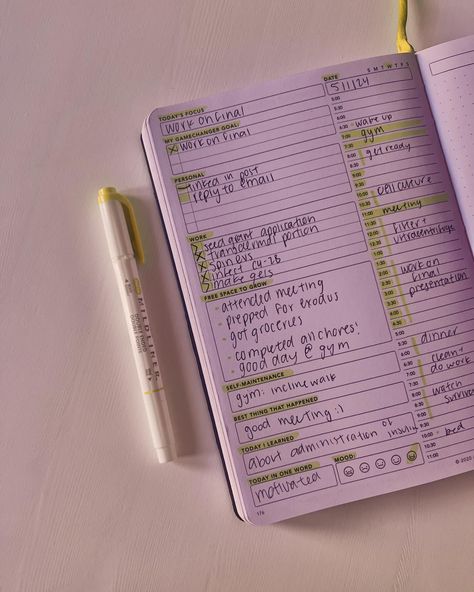 TODAY'S FOCUS
work on final
MY GAMECHANGER GOAL:
work on final
PERSONAL
linked in post
reply to email
WORK
seed grant application
transdermal portion
spin evs
infect
make gels
FREE SPACE TO GROW
- attended meeting
- prepped for exodus
- got groceries
- completed all chores!
- good day @ gym
SELF-MAINTENANCE
gym: incline walk
BEST THING THAT HAPPENED
good meeting :)
TODAY I LEARNED
about administration of insulin
TODAY IN ONE WORD
motivated
MOOD:
DATE
S M T W T F S
5/1/24
5:00
6:00
6:30 - wake up
7:00 gym
7:30
8:00 get ready
8:30
9:00
10:00 cell culture
10:30
11:00 meeting
11:30
12:00 filter +
12:30 ultracentrifuge
1:00
1:30
2:00 work on
2:30 final
3:00 presentation
3:30
4:00
5:00
dinner
clean +
7:00 do work
8:00
watch
9:00 survivor
10:00 - bed
11:00
1/6
© 2020
MILDLINER